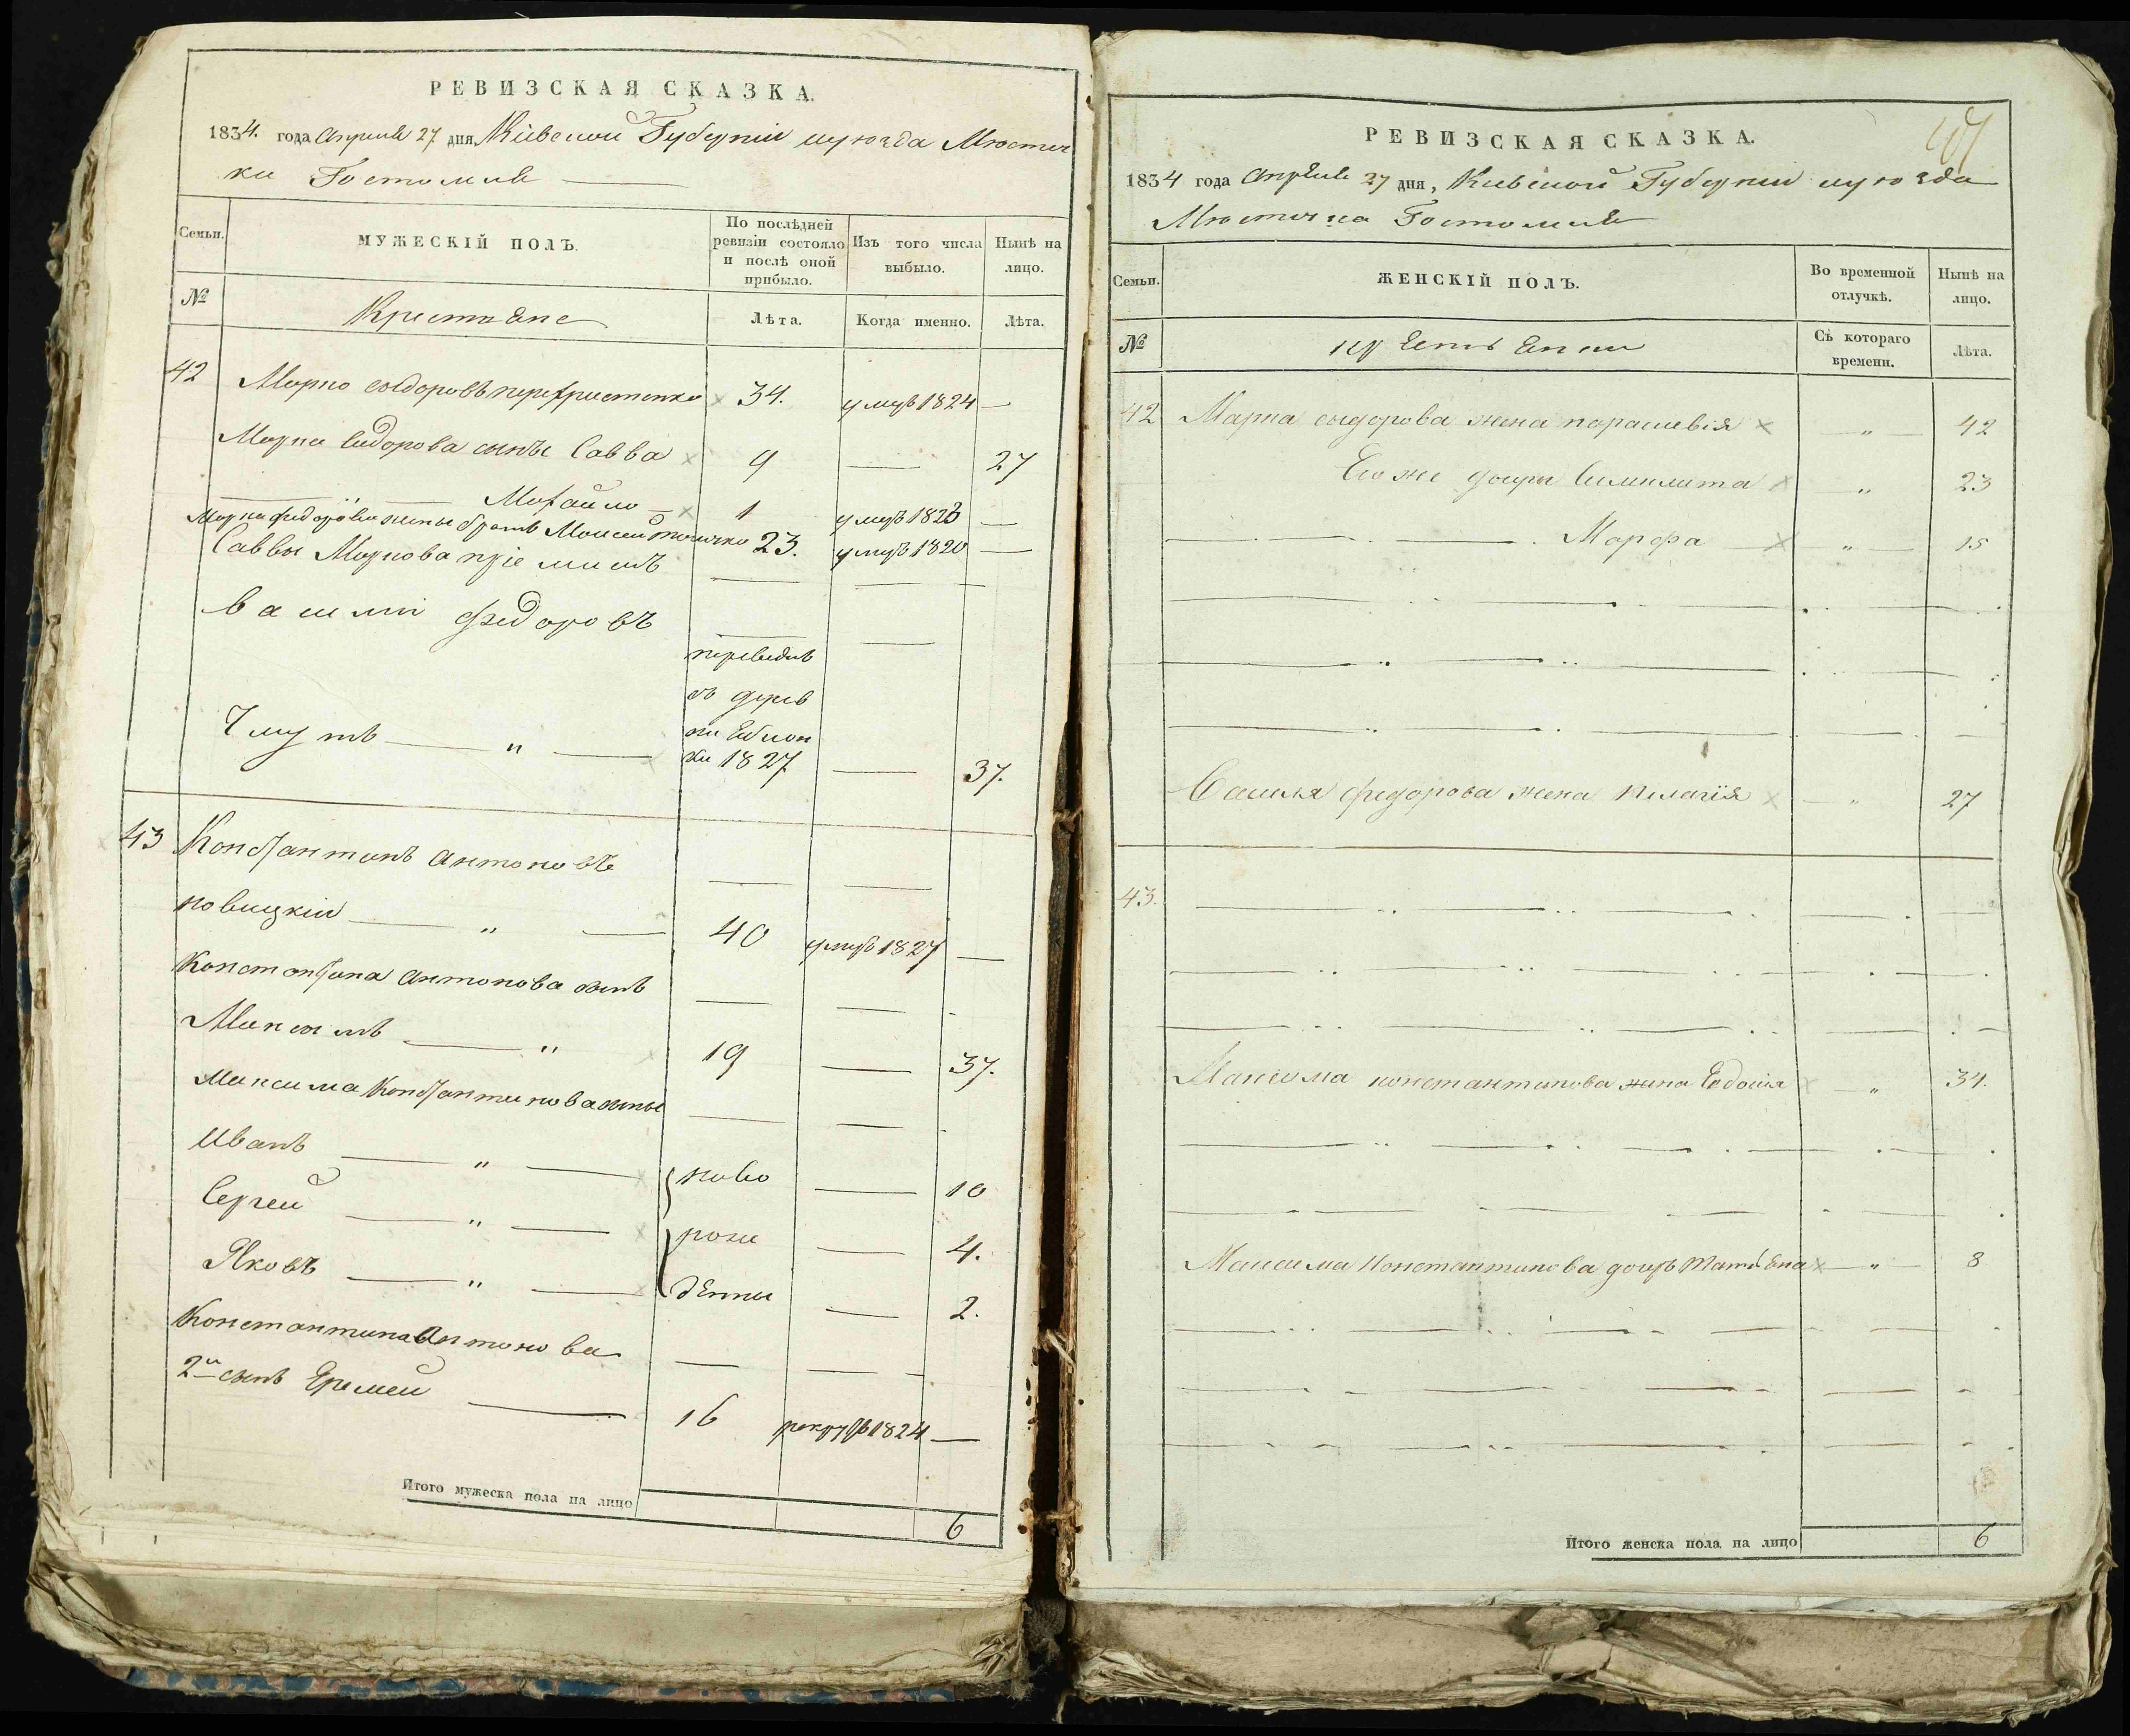 РЕВИЗСКАЯ СКАЗКА.
1834. года Апреля 27 дня, Кіевской Губерніи и уезда Местеч
ки Гостомля
Семьи.
МУЖЕСКІЙ ПОЛЪ.
По послѣдней ревизіи состояло и послѣ оной прибыло.
Изъ того числа выбыло.
Нынѣ на лицо.
№
Крестяне
Лѣта.
Когда именно.
Лѣта.
42 Марко сыдоровъ 34. умръ 1824 —
Марка Сидорова сынъ Савва 9 — 27
Михайло 1 умръ 1823 —
братъ Моисей 23. умръ 1820 —
Саввы Маркова пріемишъ
василій федоровъ
переведенъ
съ дерев
ни
ки 1827 — 37.
43 Константинъ антоновъ
новицкій — „ — 40 умръ 1827 —
Константина антонова сынъ
Максимъ — „ 19 — 37.
Максима Константинова сыны
Иванъ — „ — ново — 10
Сергей — „ — рож — 4.
Яковъ — „ — денны — 2.
Константина Антонова
2й сынъ Еремей — 16 рекрутъ 1824 —
Итого мужеска пола на лицо
6
РЕВИЗСКАЯ СКАЗКА.
1834 года Апреля 27 дня, Киевской Губернии и уезда
Местечка Гостомля
Семьи.
ЖЕНСКІЙ ПОЛЪ.
Во временной отлучкѣ.
Нынѣ на лицо.
№
Съ котораго времени.
Лѣта.
42 Марка сыдорова жена парасиевія — „ — 42
Его же дочери — „ 23
Марфа — „ — 15
Василя федорова жена Пелагія — „ 27
43.
Максима константинова жена Евдосия — „ 34.
Максима Константинова дочеръ Татіена — „ — 8
Итого женска пола на лицо
6